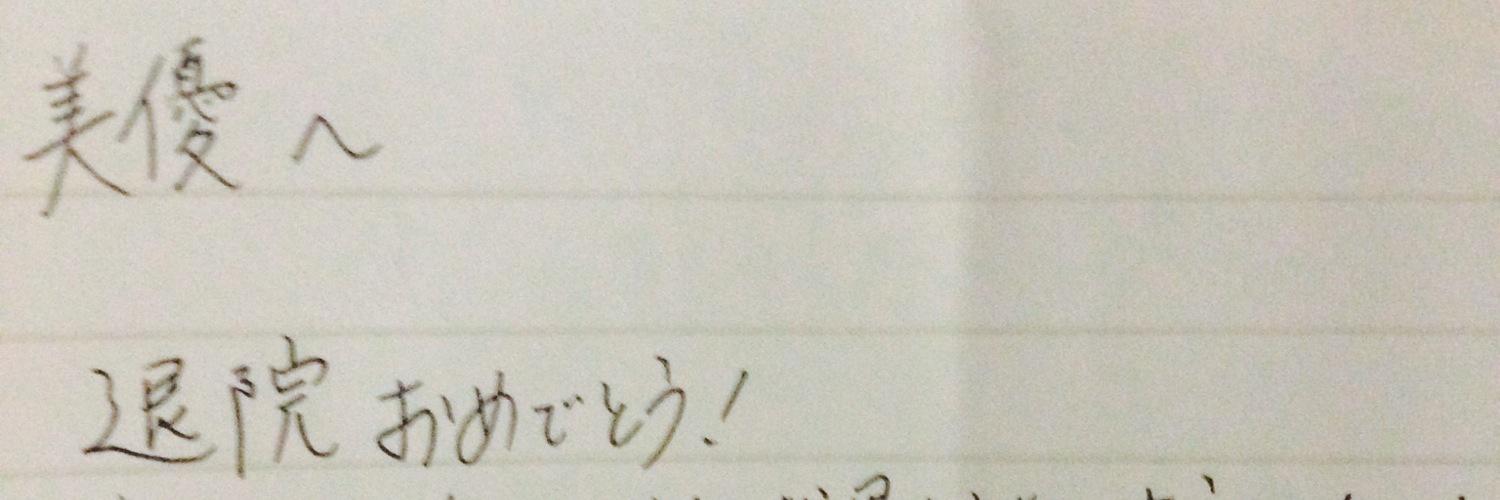 美優へ
退院おめでとう!